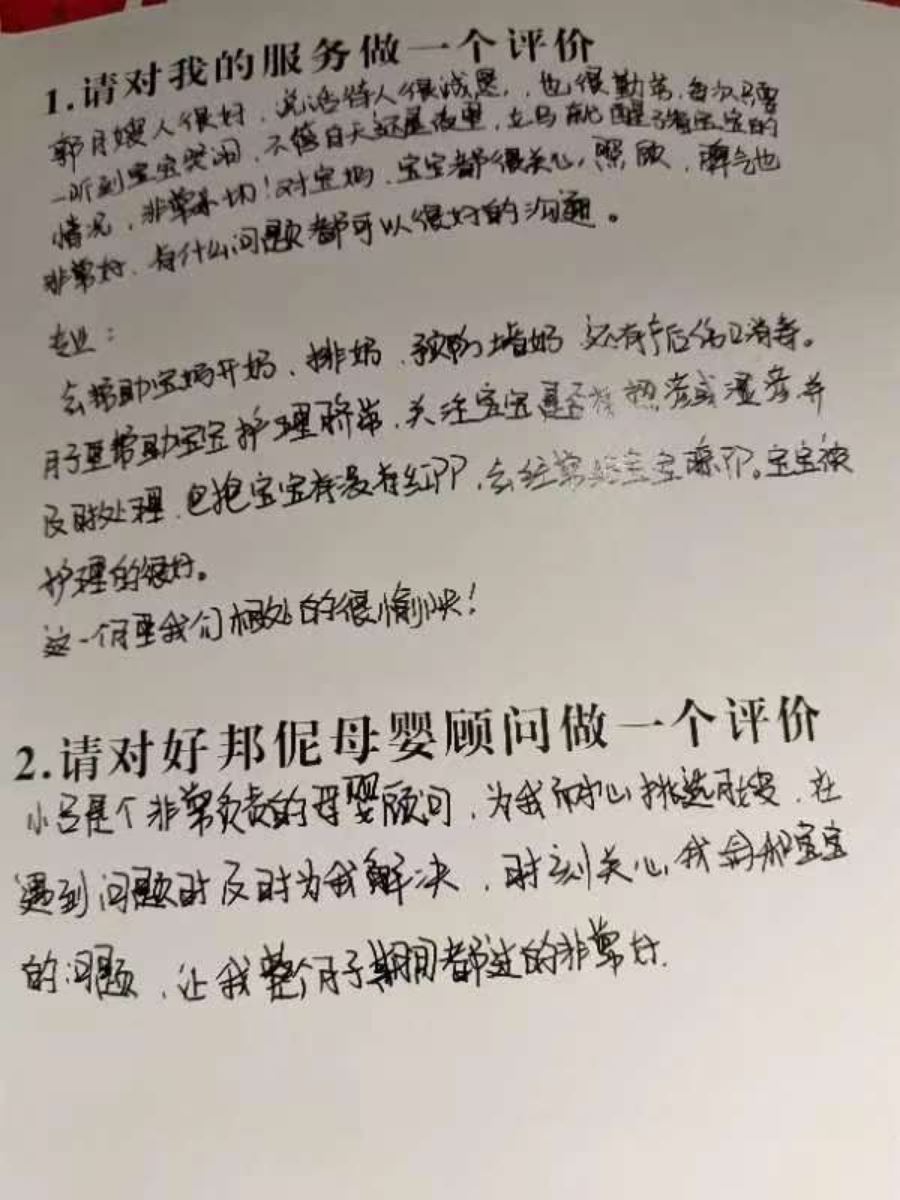 1.请对我的服务做一个评价
郭月嫂人很好，说话待人很诚恳，也很勤劳，每次只要
一听到宝宝哭闹，不管白天还是夜里，立马就醒了看宝宝的
情况，非常亲切！对宝妈、宝宝都很关心，照顾，脾气也
非常好，有什么问题都可以很好的沟通。
专业：
会帮助宝妈开奶、排奶、预防堵奶 还有产后伤口消毒。
月子里帮助宝宝护理脐带，关注宝宝是否有热疹或湿疹并
及时处理，包括宝宝有没有红PP，会经常给宝宝晾PP。宝宝被
护理的很好。
这一个月里我们相处的很愉快！
2.请对好邦伲母婴顾问做一个评价
小吕是个非常负责的母婴顾问，为我耐心挑选月嫂，在
遇到问题时及时为我解决，时刻关心我和宝宝
的问题，让我整个月子期间都过的非常好.